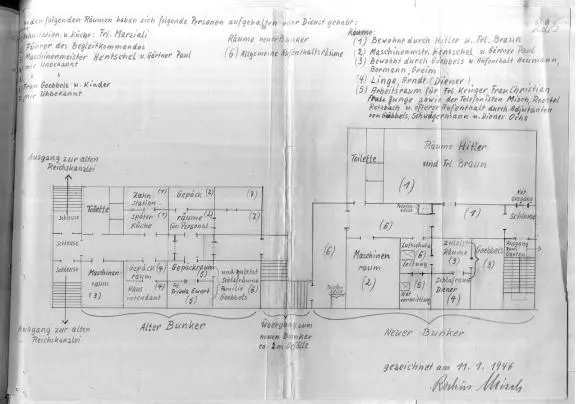 In den folgenden Räumen haben sich folgende Personen aufgehalten oder Dienst gehabt:
u. Küche: Frl. Marsiali
Führer des Begleitkommandos
Maschinenmeister Hentschel u. Gärtner Paul
mir Unbekannt
Frau Goebbels u. Kinder
mir Unbekannt
Räume neuer Bunker
(6) Allgemeine Aufenthaltsräume
Räume:
(1) Bewohnt durch Hitler u. Frl. Braun
(2) Maschinenmstr. Hentschel u. Gärtner Paul
(3) Bewohnt durch Goebbels u. Aufenthalt Naumann,
Bormann, Greim
(4) Linge, Arndt (Diener).
(5) Arbeitsraum für Frl. Krüger, Frau Christian
Frau Junge sowie der Telefonisten Misch,
Retzbach u. öfterer Aufenthalt durch Adjutanten
von Goebbels, Schwägermann u. Diener Ochs
Ausgang zur alten
Reichskanzlei
Schleuse
Schleuse
Schleuse
Toilette
Zahn
station
(1)
Gepäck
(2)
(7)
später
Küche
(1)
räume
für Personal
(2)
(7)
Maschinen
raum
(3)
Gepäck
raum
(4)
Haus
intendant
(4)
Gepäckraum
(5)
Ewert
(5)
und zuletzt
Schlafräume
Familie
Goebbels
(6)
Ausgang zur alten
Reichskanzlei
Alter Bunker
Übergang zum
neuen Bunker
ca 2 m
Toilette
Räume Hitler
und Frl. Braun
(1)
(1)
Not
ausgang
Schleuse
(6)
(6)
Maschinen
raum
(2)
Luftschutz
(6)
Leitung
(5)
vermittlung
Räume
(3)
Goebbels
(3)
Schlafraum
Diener
(4)
Ausgang
zum
Garten
Neuer Bunker
gezeichnet am 11. 1. 1946
Rochus Misch